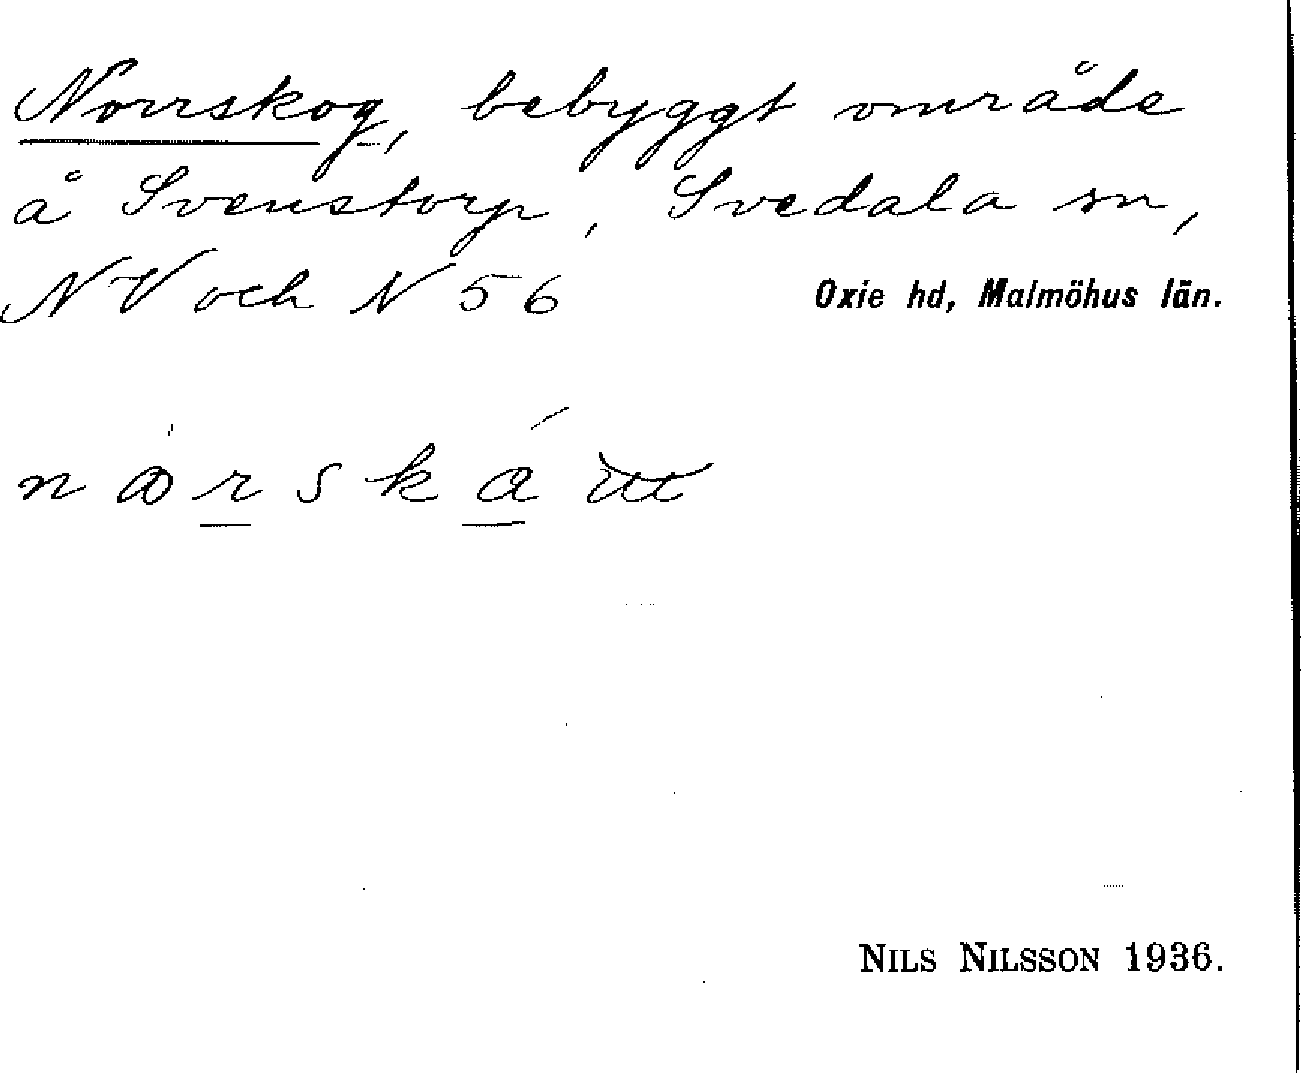 Norrskog, bebyggt område
å Svenstorp, Svedala sn,
NV och N 56
Oxie hd, Malmöhus län.
NILS NILSSON 1936.